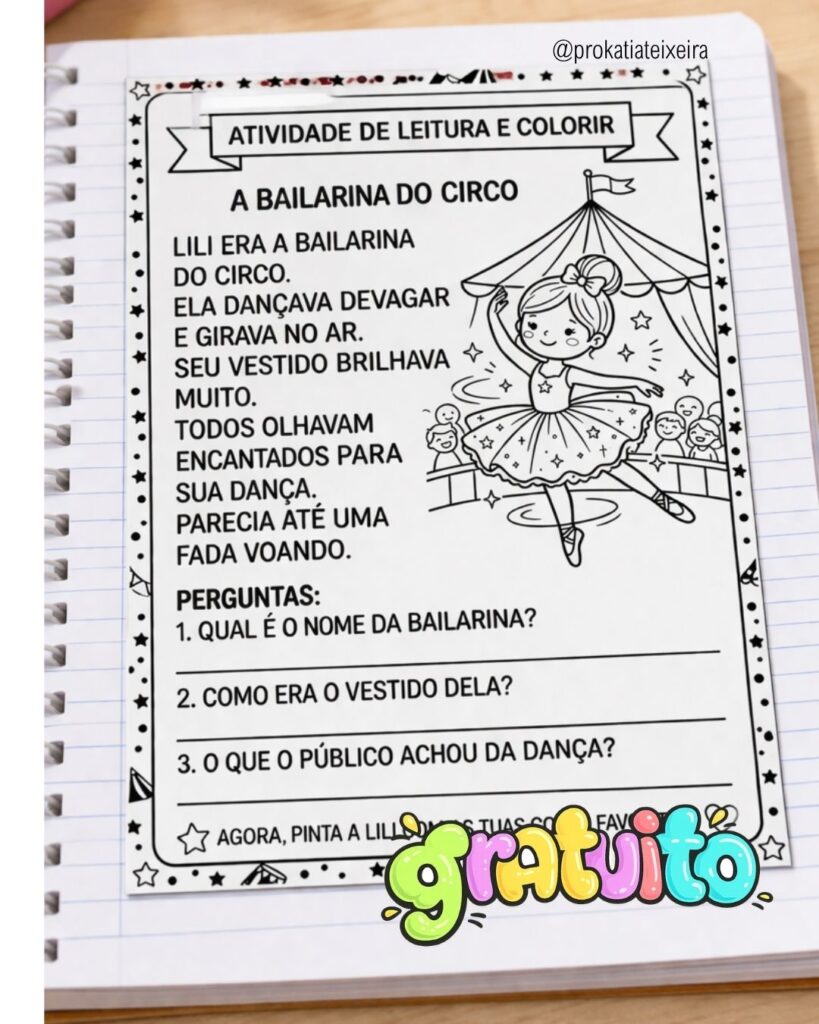 @prokatiateixeira
ATIVIDADE DE LEITURA E COLORIR
A BAILARINA DO CIRCO
LILI ERA A BAILARINA
DO CIRCO.
ELA DANÇAVA DEVAGAR
E GIRAVA NO AR.
SEU VESTIDO BRILHAVA
MUITO.
TODOS OLHAVAM
ENCANTADOS PARA
SUA DANÇA.
PARECIA ATÉ UMA
FADA VOANDO.
PERGUNTAS:
1. QUAL É O NOME DA BAILARINA?
2. COMO ERA O VESTIDO DELA?
3. O QUE O PÚBLICO ACHOU DA DANÇA?
AGORA, PINTA A LILI TUAS
gratuito